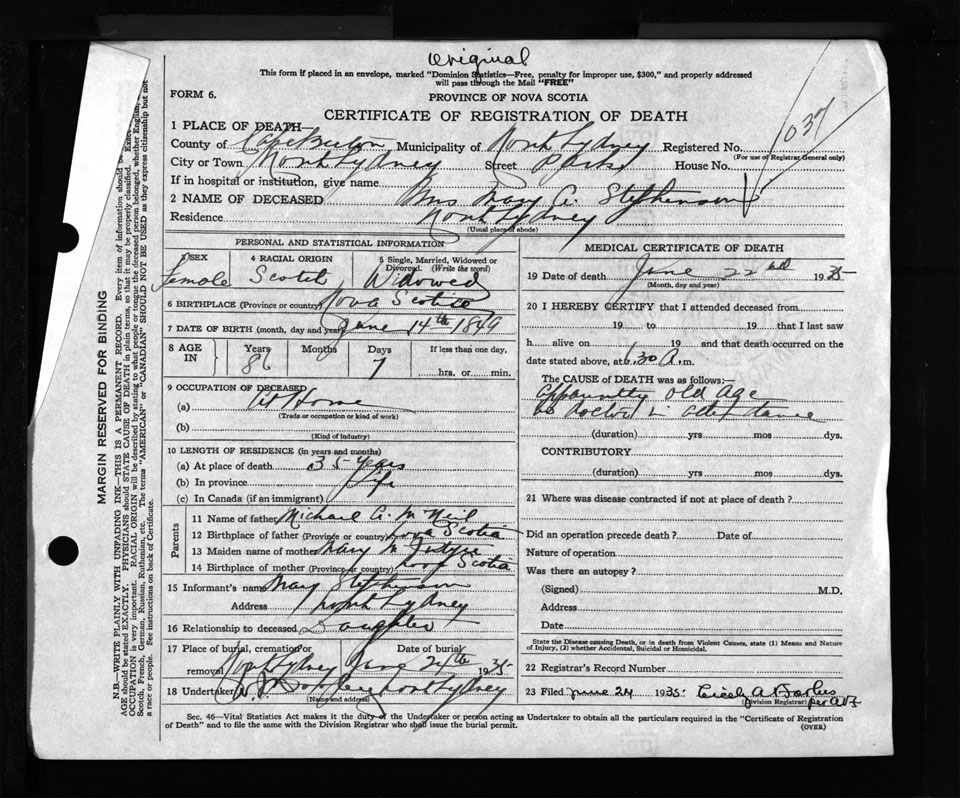 Original
This form if placed in an envelope, marked "Dominion Statistics—Free, penalty for improper use, $300," and properly addressed
will pass through the Mail "FREE"
FORM 6.
PROVINCE OF NOVA SCOTIA
CERTIFICATE OF REGISTRATION OF DEATH
037
1 PLACE OF DEATH—
County of Cape Breton Municipality of North Sydney Registered No.
(For use of Registrar General only)
City or Town North Sydney Street House No.
If in hospital or institution, give name
2 NAME OF DECEASED Mrs Mary A. Stephenson
Residence North Sydney
(Usual place of abode)
PERSONAL AND STATISTICAL INFORMATION
3 SEX 4 RACIAL ORIGIN 5 Single, Married, Widowed or Divorced. (Write the word)
Female Scotch Widowed
6 BIRTHPLACE (Province or country) Nova Scotia
7 DATE OF BIRTH (month, day and year) June 14th 1849
8 AGE IN Years Months Days If less than one day,
86 7 hrs. or min.
9 OCCUPATION OF DECEASED
(a) At Home
(Trade or occupation or kind of work)
(b)
(Kind of industry)
10 LENGTH OF RESIDENCE (in years and months)
(a) At place of death 35 years
(b) In province Life
(c) In Canada (if an immigrant)
Parents
11 Name of father Michael A. McNeil
12 Birthplace of father (Province or country) Nova Scotia
13 Maiden name of mother Mary McIntyre
14 Birthplace of mother (Province or country) Nova Scotia
15 Informant's name Mary Stephenson
Address North Sydney
16 Relationship to deceased Daughter
17 Place of burial, cremation or removal Date of burial
North Sydney June 24th 1935
18 Undertaker North Sydney
(Name and address)
MEDICAL CERTIFICATE OF DEATH
19 Date of death June 22nd 1935
(Month, day and year)
20 I HEREBY CERTIFY that I attended deceased from
19 to 19 that I last saw
h alive on 19 and that death occurred on the
date stated above, at 6.30 A.m.
The CAUSE OF DEATH was as follows:—
Apparently old age
no doctor in attendance
(duration) yrs mos dys.
CONTRIBUTORY
(duration) yrs mos dys.
21 Where was disease contracted if not at place of death?
Did an operation precede death? Date of
Nature of operation
Was there an autopsy?
(Signed) M.D.
Address
Date
State the Disease causing Death, or in death from Violent Causes, state (1) Means and Nature
of Injury, (2) whether Accidental, Suicidal or Homicidal.
22 Registrar's Record Number
23 Filed June 24 1935
(Division Registrar)
Sec. 46—Vital Statistics Act makes it the duty of the Undertaker or person acting as Undertaker to obtain all the particulars required in the "Certificate of Registration
of Death" and to file the same with the Division Registrar who shall issue the burial permit.
(OVER)
MARGIN RESERVED FOR BINDING
N.B.—WRITE PLAINLY WITH UNFADING INK—THIS IS A PERMANENT RECORD. Every item of information should be
AGE should be stated EXACTLY. PHYSICIANS should STATE CAUSE OF DEATH in plain terms, so that it may be properly classified.
OCCUPATION is very important. RACIAL ORIGIN will be described by stating to what people or tongue the deceased person belonged, whether English,
Scotch, French, German, Russian, Ruthenian, etc. The terms "AMERICAN" or "CANADIAN" SHOULD NOT BE USED as they express citizenship but not
a race or people. See instructions on back of Certificate.